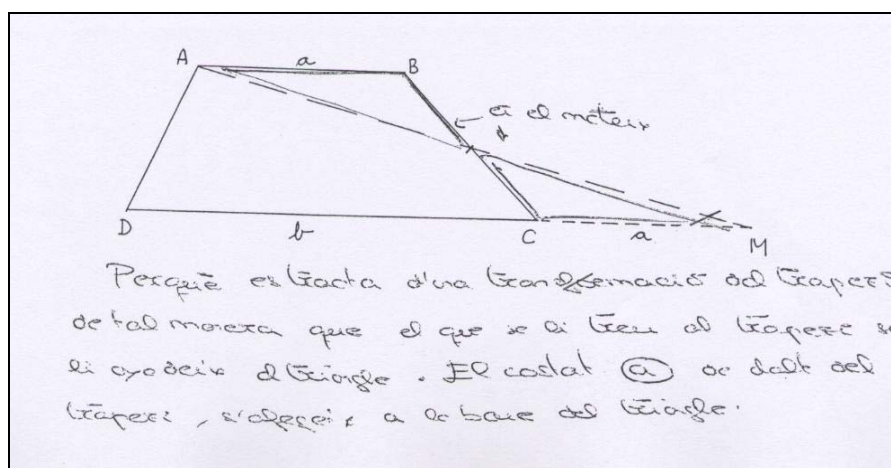 A a B
← és el mateix
D b C a M
Perquè es tracta d'una transformació del trapezi
de tal manera que el que se li treu al trapezi se
li afegeix al triangle. El costat a de dalt del
trapezi, s'afegeix a la base del triangle.